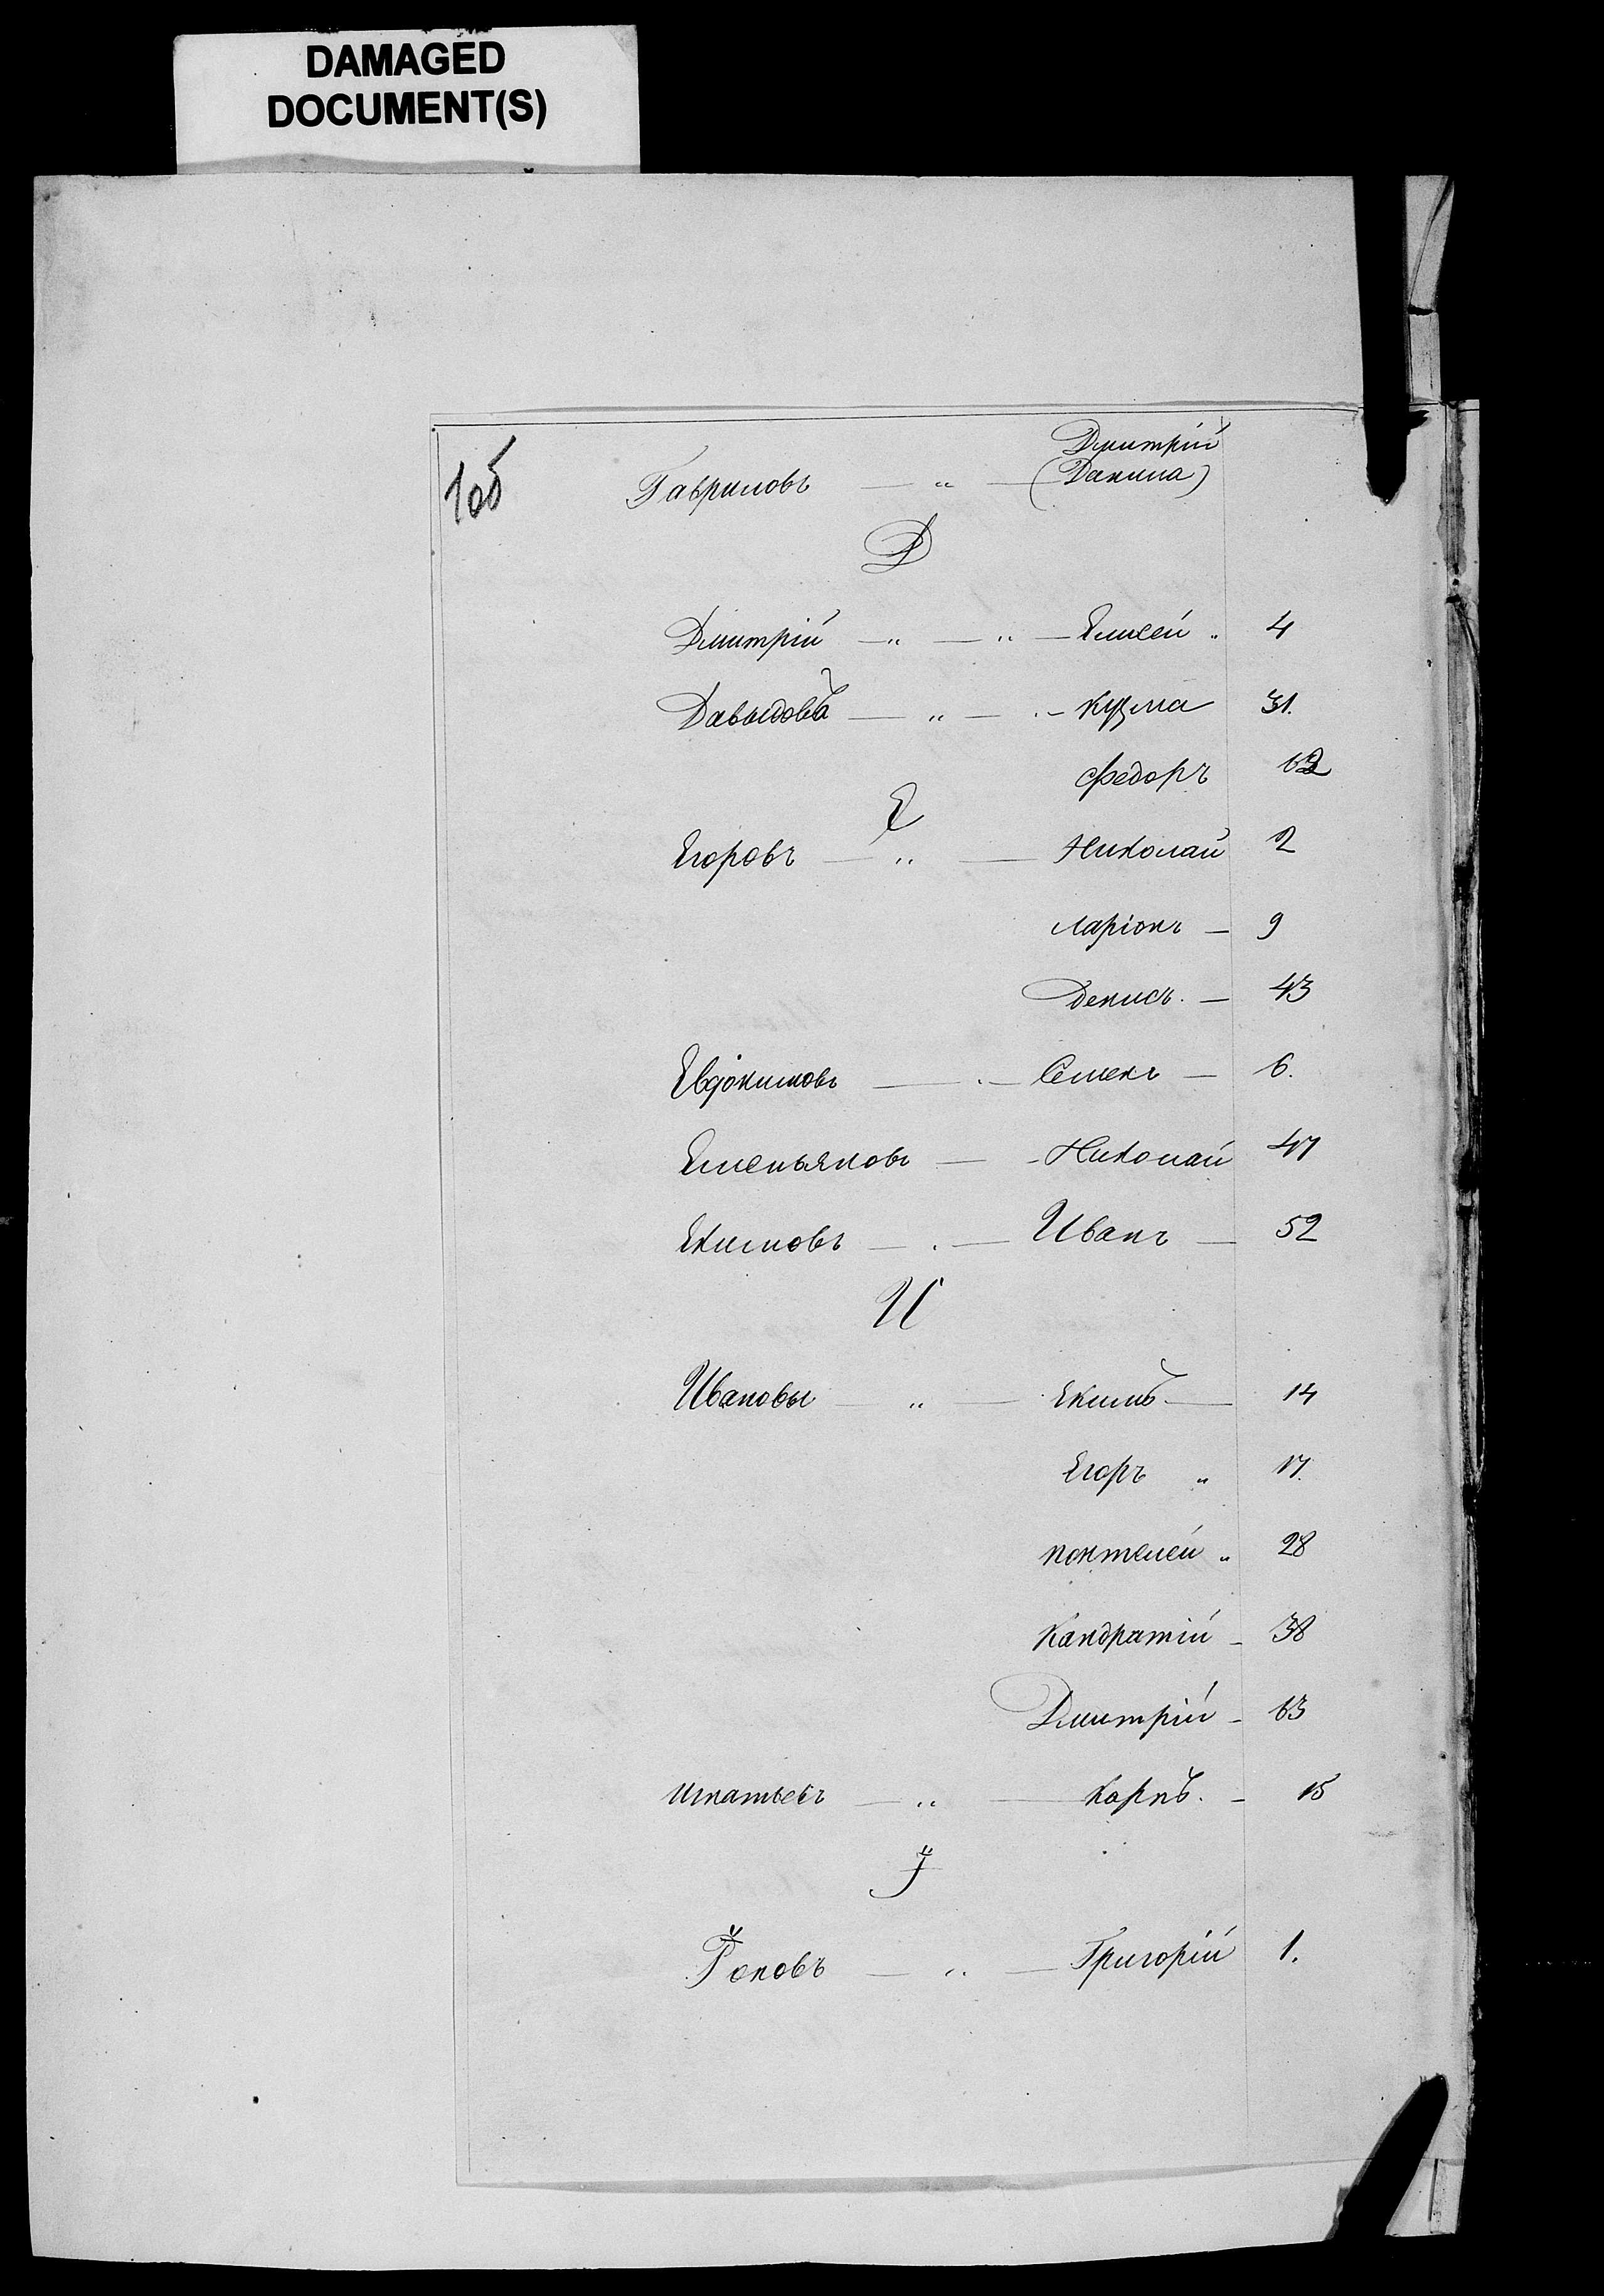 DAMAGED
DOCUMENT(S)
105
Дмитрій
Гавриловъ — „ — (Данила)
Д
Дмитрій — „ — „ — Елисей „ 4
Давыдовъ — „ — . — Кузма 31.
Федоръ 62
Е
Егоровъ — „ — Николай 2
Ларіонъ — 9
Денисъ. — 43
Евдокимовъ — . — Семенъ — 6.
Емельяновъ — - Николай 47
Екимовъ — . — Иванъ — 52
И
Ивановы — „ — Екимъ — 14
Егоръ „ 17.
Понтелей „ 28
Кандратій - 38
Дмитрій - 63
Игнатьевъ — „ — Карпъ. - 15
I
Іоновъ — „ — Григорій 1.